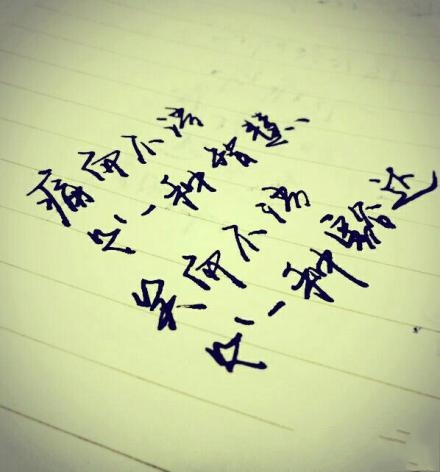 痛而不语
是一种智慧
笑而不语
是一种豁达